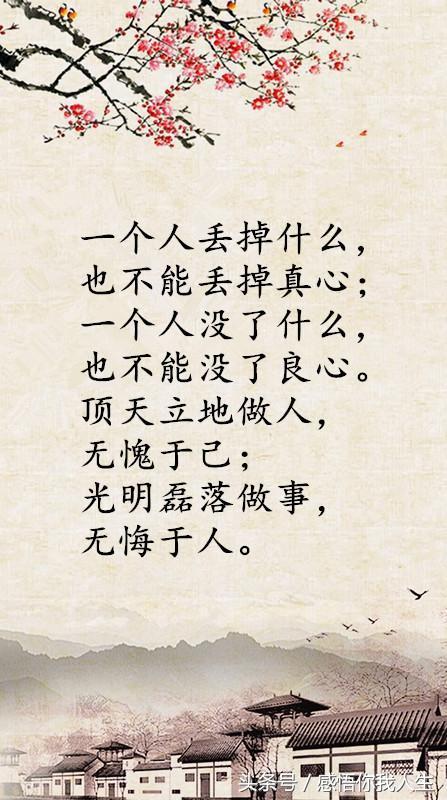 一个人丢掉什么，
也不能丢掉真心；
一个人没了什么，
也不能没了良心。
顶天立地做人，
无愧于己；
光明磊落做事，
无悔于人。
头条号/感悟你我人生